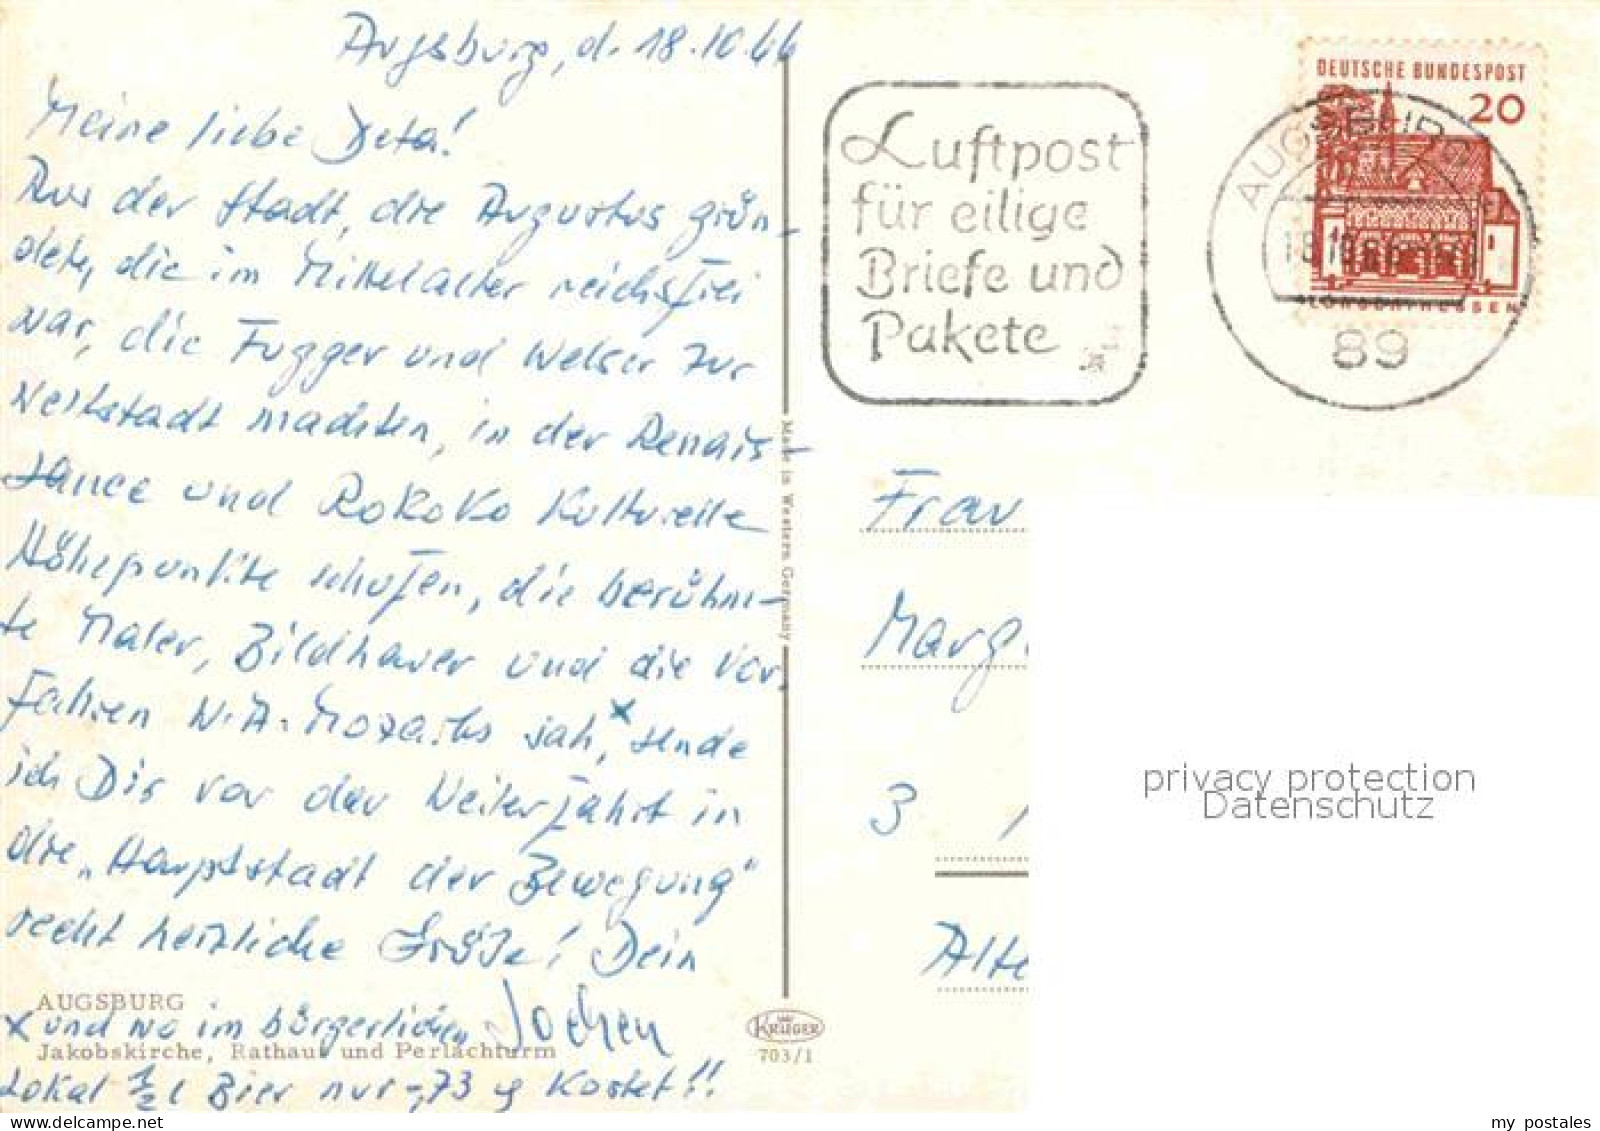 Augsburg, d. 18.10.66
Meine liebe Deta!
Aus der Stadt, die Augustus grün-
dete, die im Mittelalter reichsfrei
war, die Fugger und Welser zur
Weltstadt machten, in der Renais-
sance und Rokoko kulturelle
Höhepunkte schufen, die berühm-
te Maler, Bildhauer und die Vor-
fahren W.A. Mozarts sah,x sende
ich Dir vor der Weiterfahrt in
die „Hauptstadt der Bewegung"
recht herzliche Grüße! Dein
Jochen
AUGSBURG
x und wo im bürgerlichen
Jakobskirche, Rathaus und Perlachturm
Lokal 1/2 l Bier nur -,73 kostet!!
Made in Western Germany
KRÜGER
703/1
Luftpost
für eilige
Briefe und
Pakete
DEUTSCHE BUNDESPOST
20
LORSCH/HESSEN
AUGSBURG
18.10.66
89
Frau
Marg
3
Alte
privacy protection
Datenschutz
my postales